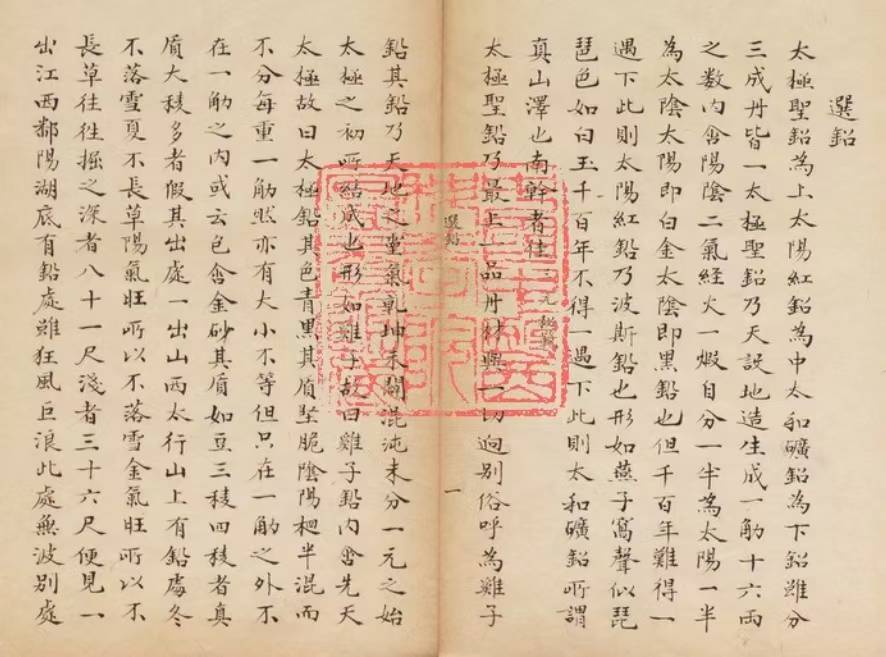 選鉛
太極聖鉛為上太陽紅鉛為中太和礦鉛為下鉛雖分
三成丹皆一太極聖鉛乃天設地造生成一觔十六兩
之数內含陽陰二氣経火一煆自分一半為太陽一半
為太陰太陽即白金太陰即黑鉛也但千百年難得一
遇下此則太陽紅鉛乃波斯鉛也形如燕子窩聲似琵
琶色如白玉千百年不得一遇下此則太和礦鉛所謂
真山澤也南幹者佳
太極聖鉛乃最上一品丹材與一切逈別俗呼為雞子
選鉛
一
鉛其鉛乃天地之
氣乾坤未闢混沌未分一元之始
太極之初所結成也形如雞子故曰雞子鉛內含先天
太極故曰太極鉛其色青黑其質堅脆陰陽
半混而
不分每重一觔然亦有大小不等但只在一觔之外不
在一觔之內或云包含金砂其質如豆三稜四稜者真
質大稜多者假其出處一出山西太行山上有鉛處冬
不落雪夏不長草陽氣旺所以不落雪金氣旺所以不
長草往往掘之深者八十一尺淺者三十六尺便見一
出江西鄱陽湖底有鉛處雖狂風巨浪此處無波別處